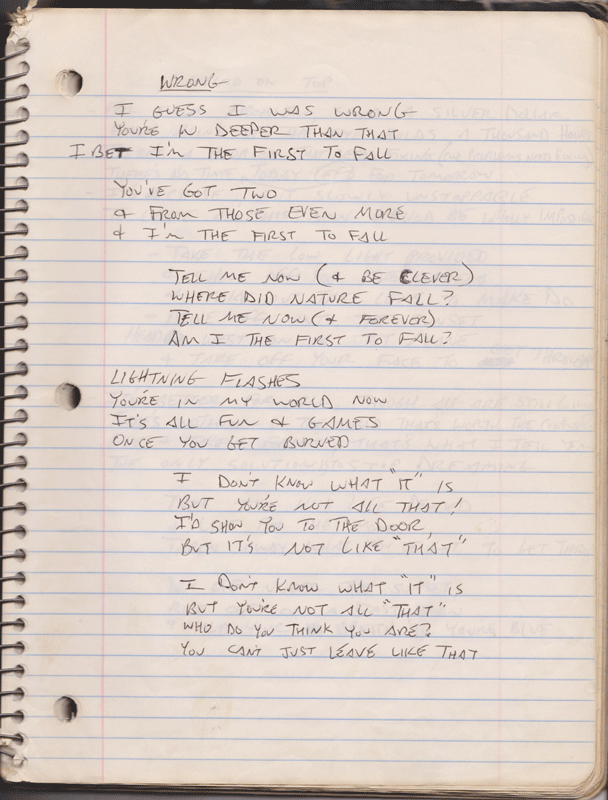 WRONG
I GUESS I WAS WRONG
YOU'RE IN DEEPER THAN THAT
I BET I'M THE FIRST TO FALL
YOU'VE GOT TWO
& FROM THOSE EVEN MORE
& I'M THE FIRST TO FALL
TELL ME NOW (& BE CLEVER)
WHERE DID NATURE FALL?
TELL ME NOW (& FOREVER)
AM I THE FIRST TO FALL?
LIGHTNING FLASHES
YOU'RE IN MY WORLD NOW
IT'S ALL FUN & GAMES
ONCE YOU GET BURNED
I DON'T KNOW WHAT "IT" IS
BUT YOU'RE NOT ALL THAT!
I'D SHOW YOU TO THE DOOR,
BUT IT'S NOT LIKE "THAT"
I DON'T KNOW WHAT "IT" IS
BUT YOU'RE NOT ALL "THAT"
WHO DO YOU THINK YOU ARE?
YOU CAN'T JUST LEAVE LIKE THAT